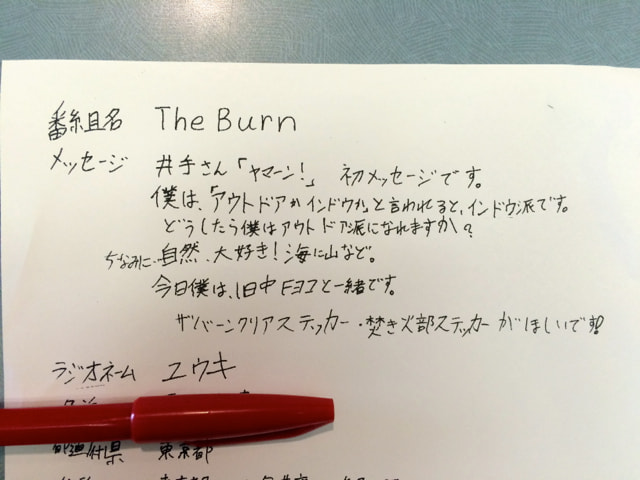 番組名 The Burn
メッセージ 井手さん「ヤマーン!」 初メッセージです。
僕は、「アウトドアかインドウか」と言われると、インドウ派です。
どうしたら僕はアウトドア派になれますか?
ちなみに、自然、大好き!海に山など。
今日僕は、田中FヨコとÀ一緒です。
ザバーンクリアステッカー・焚き火部ステッカーがほしいです!!
ラジオネーム ユウキ
都道府県 東京都